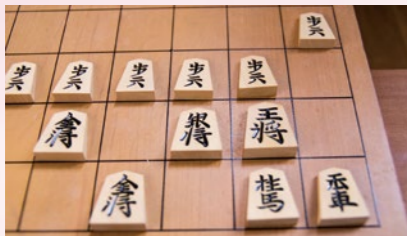 歩兵
歩兵 歩兵 歩兵 歩兵 歩兵
金将 銀将 王将
金将 桂馬 香車